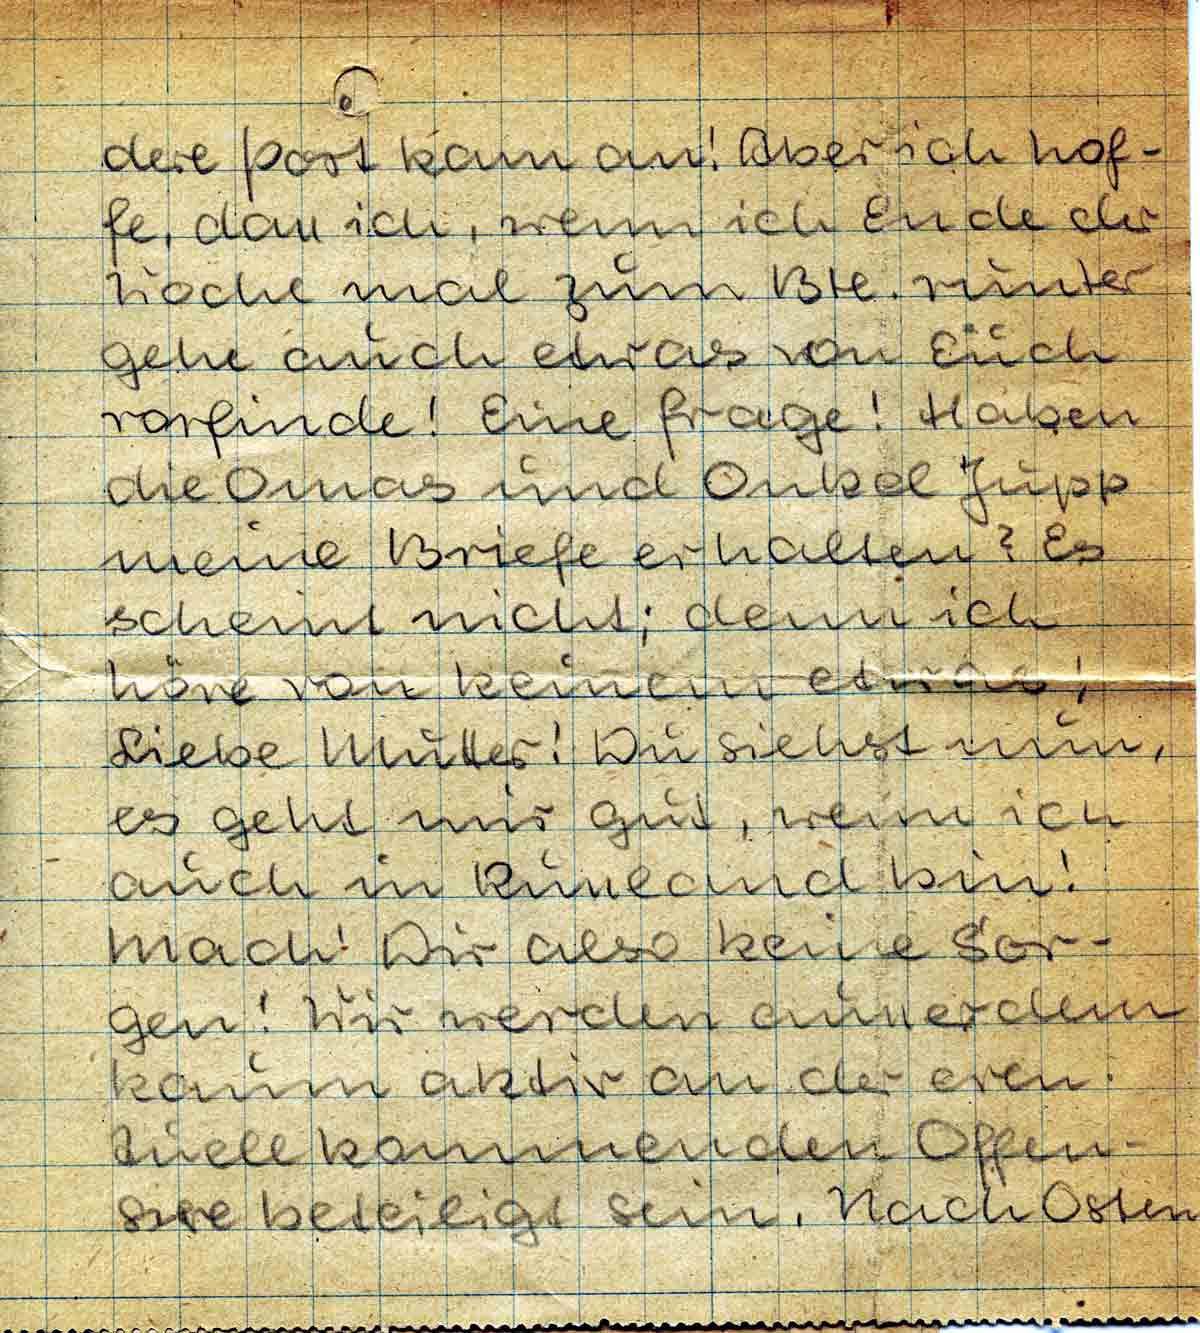 dere Post kam an! Aber ich hof-
fe, dass ich, wenn ich Ende der
Woche mal zum Btl. runter
gehe auch etwas von Euch
vorfinde! Eine Frage! Haben
die Omas und Onkel Jupp
meine Briefe erhalten? Es
scheint nicht; denn ich
höre von keinem etwas!
Liebe Mutter! Du siehst nun,
es geht mir gut, wenn ich
auch in Russland bin!
Mach' Dir also keine Sor-
gen! Wir werden ausserdem
kaum aktiv an der even-
tuell kommenden Offen-
sive beteiligt sein. Nach Osten